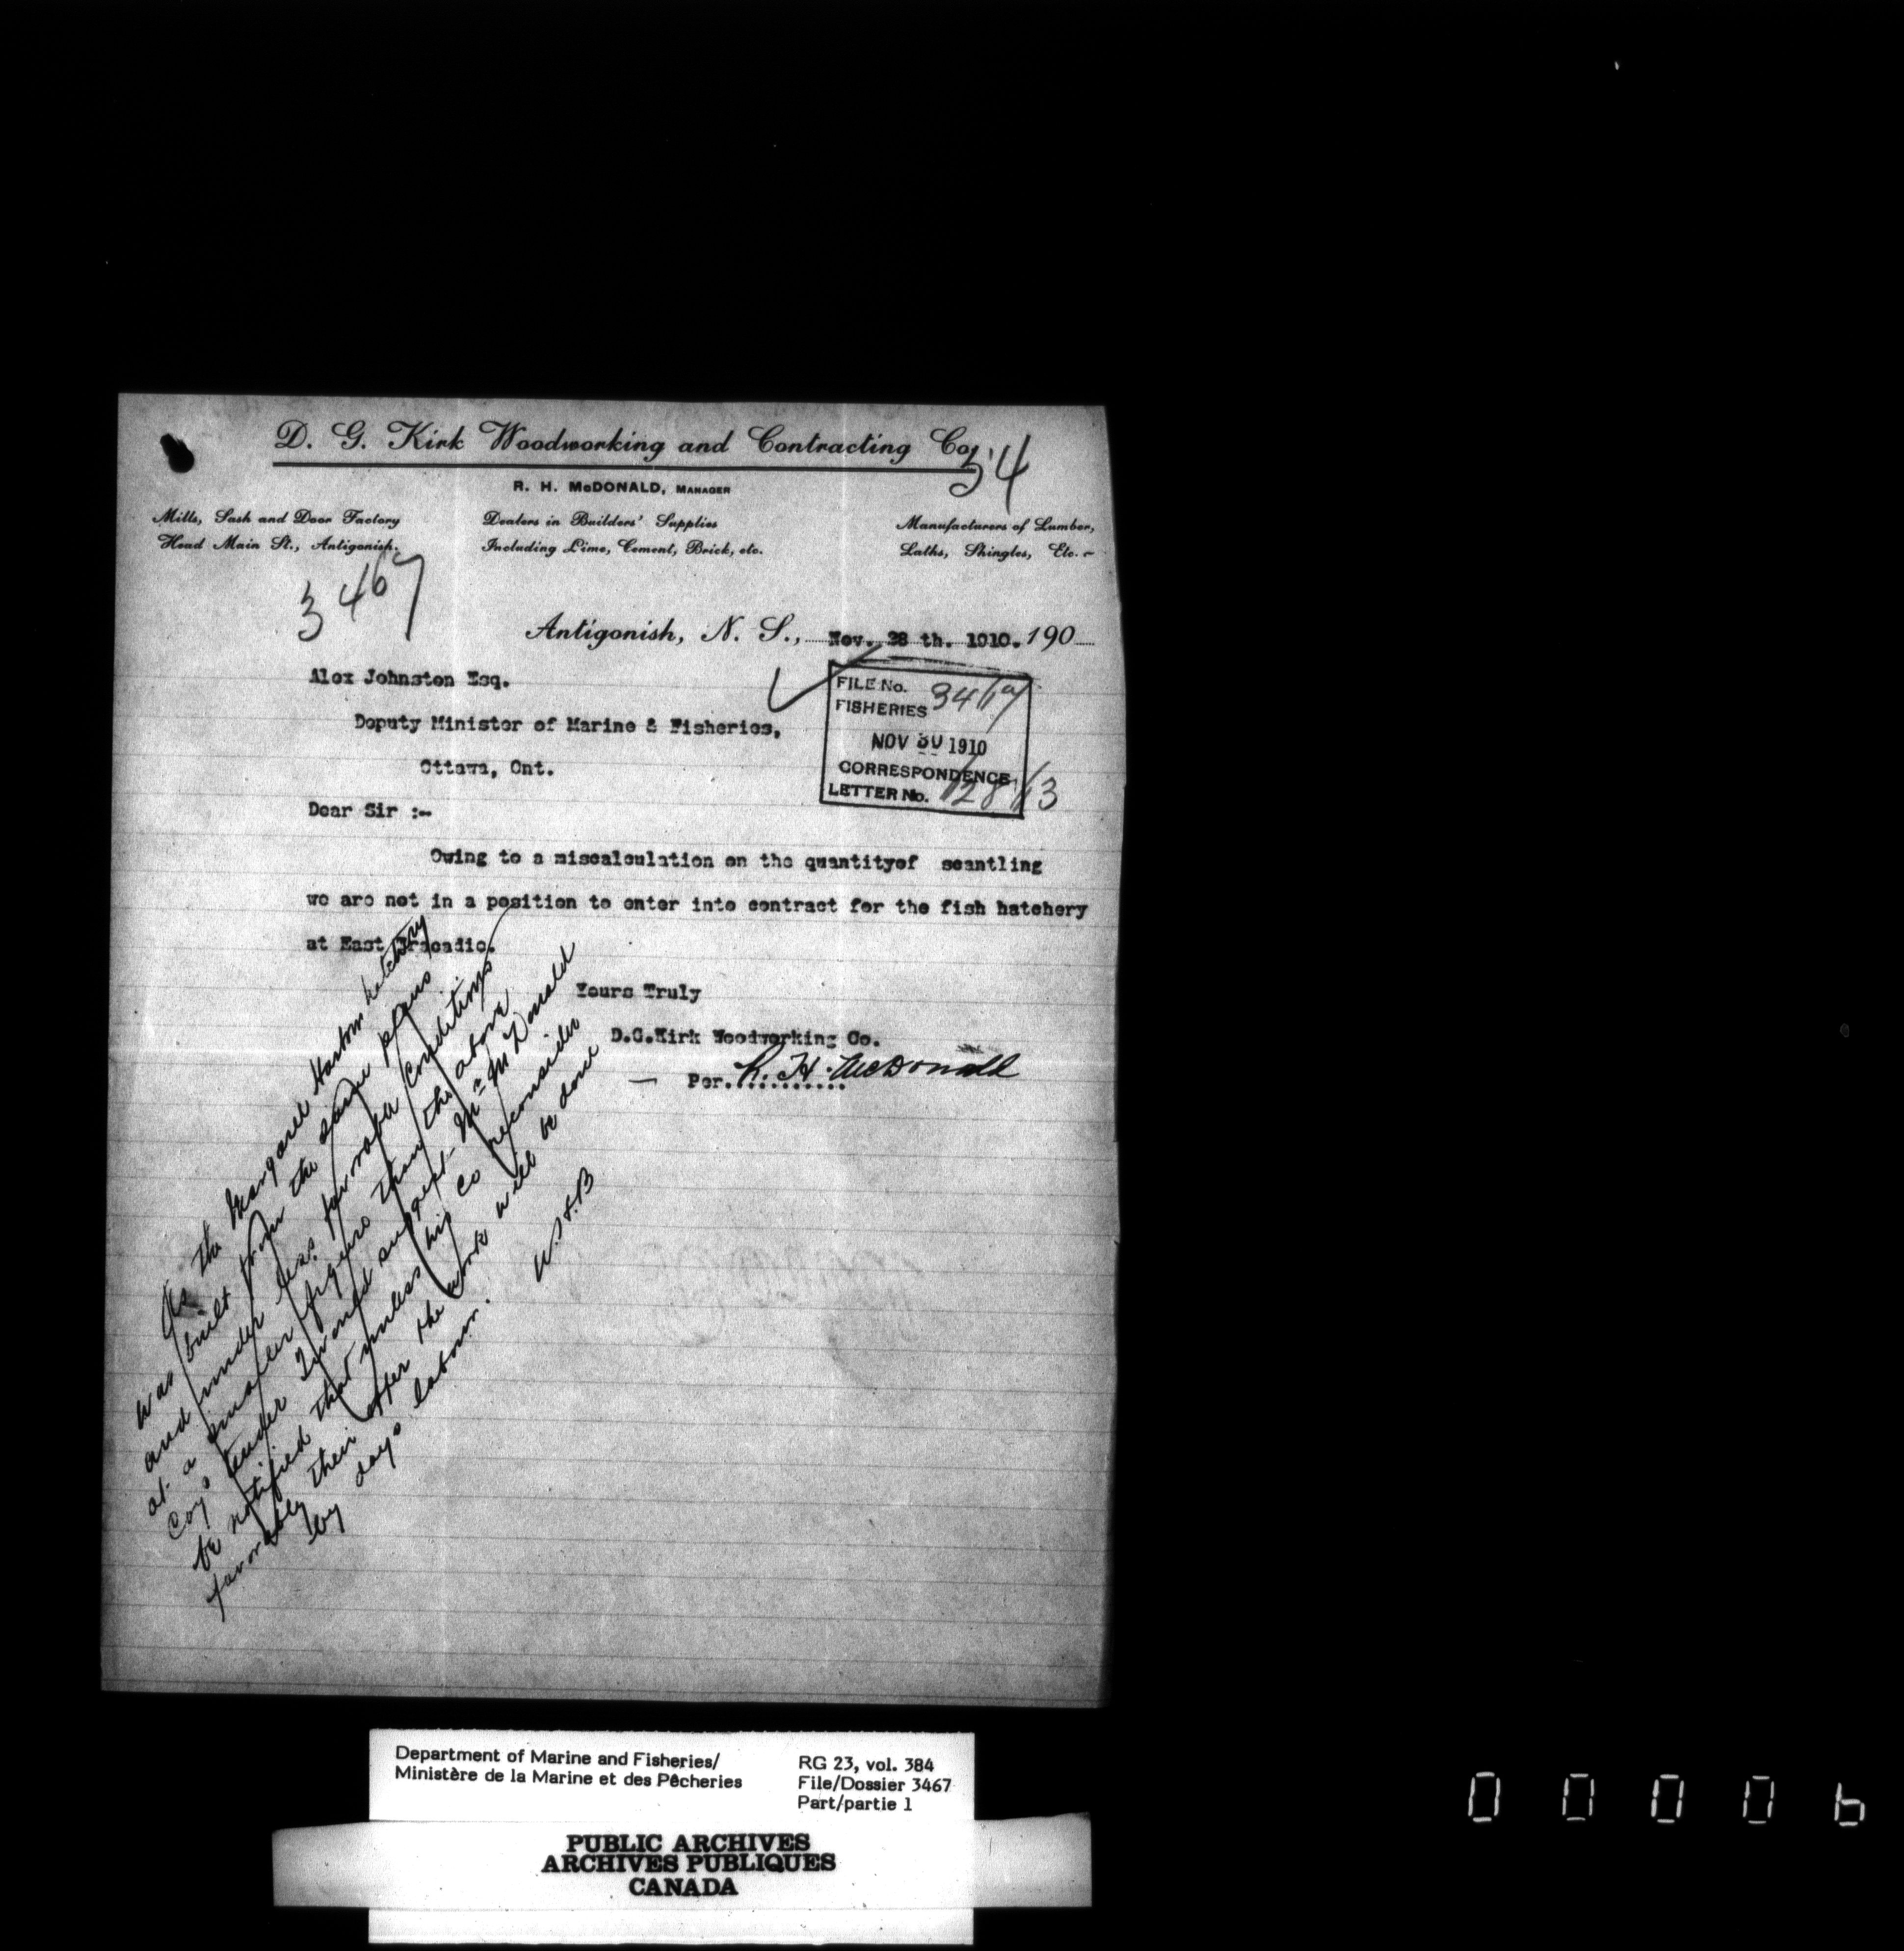 D. G. Kirk Woodworking and Contracting Co.
54
R. H. McDONALD, MANAGER
Mills, Sash and Door Factory
Head Main St., Antigonish.
Dealers in Builders' Supplies
Including Lime, Cement, Brick, etc.
Manufacturers of Lumber,
Laths, Shingles, Etc.
3467
Antigonish, N. S., Nov. 28 th. 1910. 190
Alex Johnston Esq.
Deputy Minister of Marine & Fisheries,
Ottawa, Ont.
FILE No. 3467
FISHERIES
NOV 30 1910
CORRESPONDENCE
LETTER No.
Dear Sir :-
Owing to a miscalculation on the quantityof scantling
we are not in a position to enter into contract for the fish hatchery
at East Tracadie.
Yours Truly
D.G.Kirk Woodworking Co.
Per. R. H. McDonald
As the Margaree Harbour hatchery
was built from the same plans
and under less favorable conditions
at a smaller figure than the above
Coy's tender I would suggest Mr McDonald
be notified that unless his Co reconsider
favorably their offer the work will be done
by days labour.
Department of Marine and Fisheries/
Ministère de la Marine et des Pêcheries
RG 23, vol. 384
File/Dossier 3467
Part/partie 1
PUBLIC ARCHIVES
ARCHIVES PUBLIQUES
CANADA
0 0 0 0 6